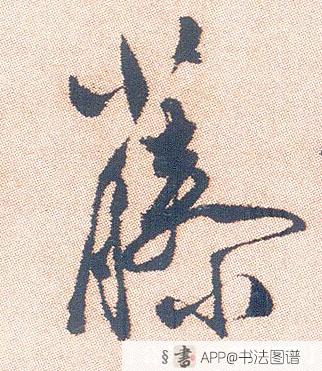 藤
§書 APP@书法图谱